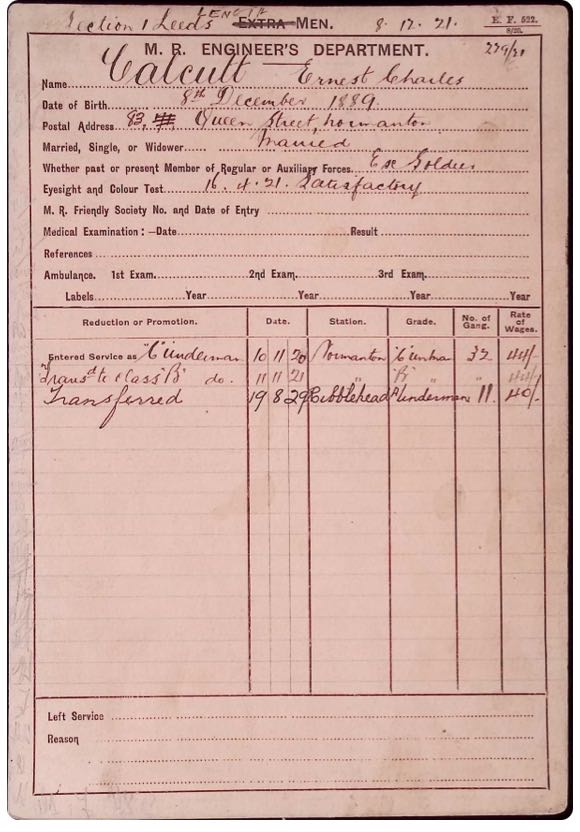 Section 1 Leeds LENGTH EXTRA MEN. 8.12.21. E. F. 522.
8/20.
M. R. ENGINEER'S DEPARTMENT. 279/21
Name Calcutt Ernest Charles
Date of Birth 8th December 1889.
Postal Address 83, Queen Street, Normanton
Married, Single, or Widower Married
Whether past or present Member of Regular or Auxiliary Forces. Ex Soldier
Eyesight and Colour Test 16.4.21. Satisfactory
M. R. Friendly Society No. and Date of Entry
Medical Examination :—Date Result
References
Ambulance. 1st Exam. 2nd Exam. 3rd Exam.
Labels Year Year Year Year
Reduction or Promotion. Date. Station. Grade. No. of Gang. Rate of Wages.
Entered Service as "C" Underman 10 11 20 Normanton "C" 32 44/-
Transd to Class "B" do. 11 11 21 " "B" " 44/-
Transferred 19 8 29 Ribblehead Underman 11. 40/-
Left Service
Reason